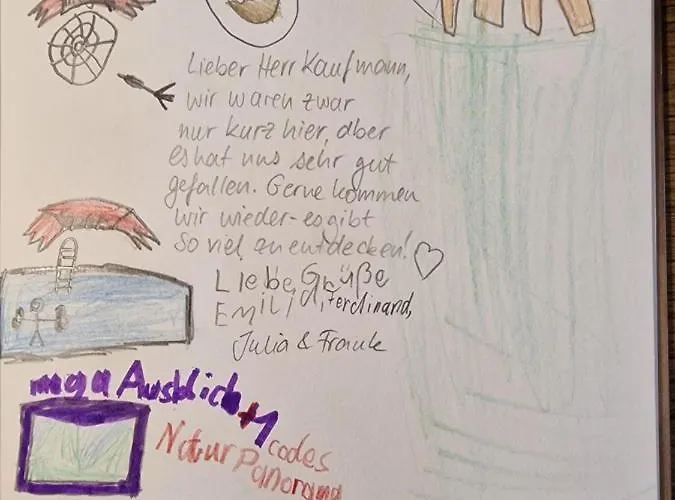 Lieber Herr Kaufmann,
wir waren zwar
nur kurz hier, aber
es hat uns sehr gut
gefallen. Gerne kommen
wir wieder - es gibt
so viel zu entdecken! ♡
Liebe Grüße
Emilia, Ferdinand,
Julia & Frauke
mega Ausblick
+1
codes
Natur Panorama